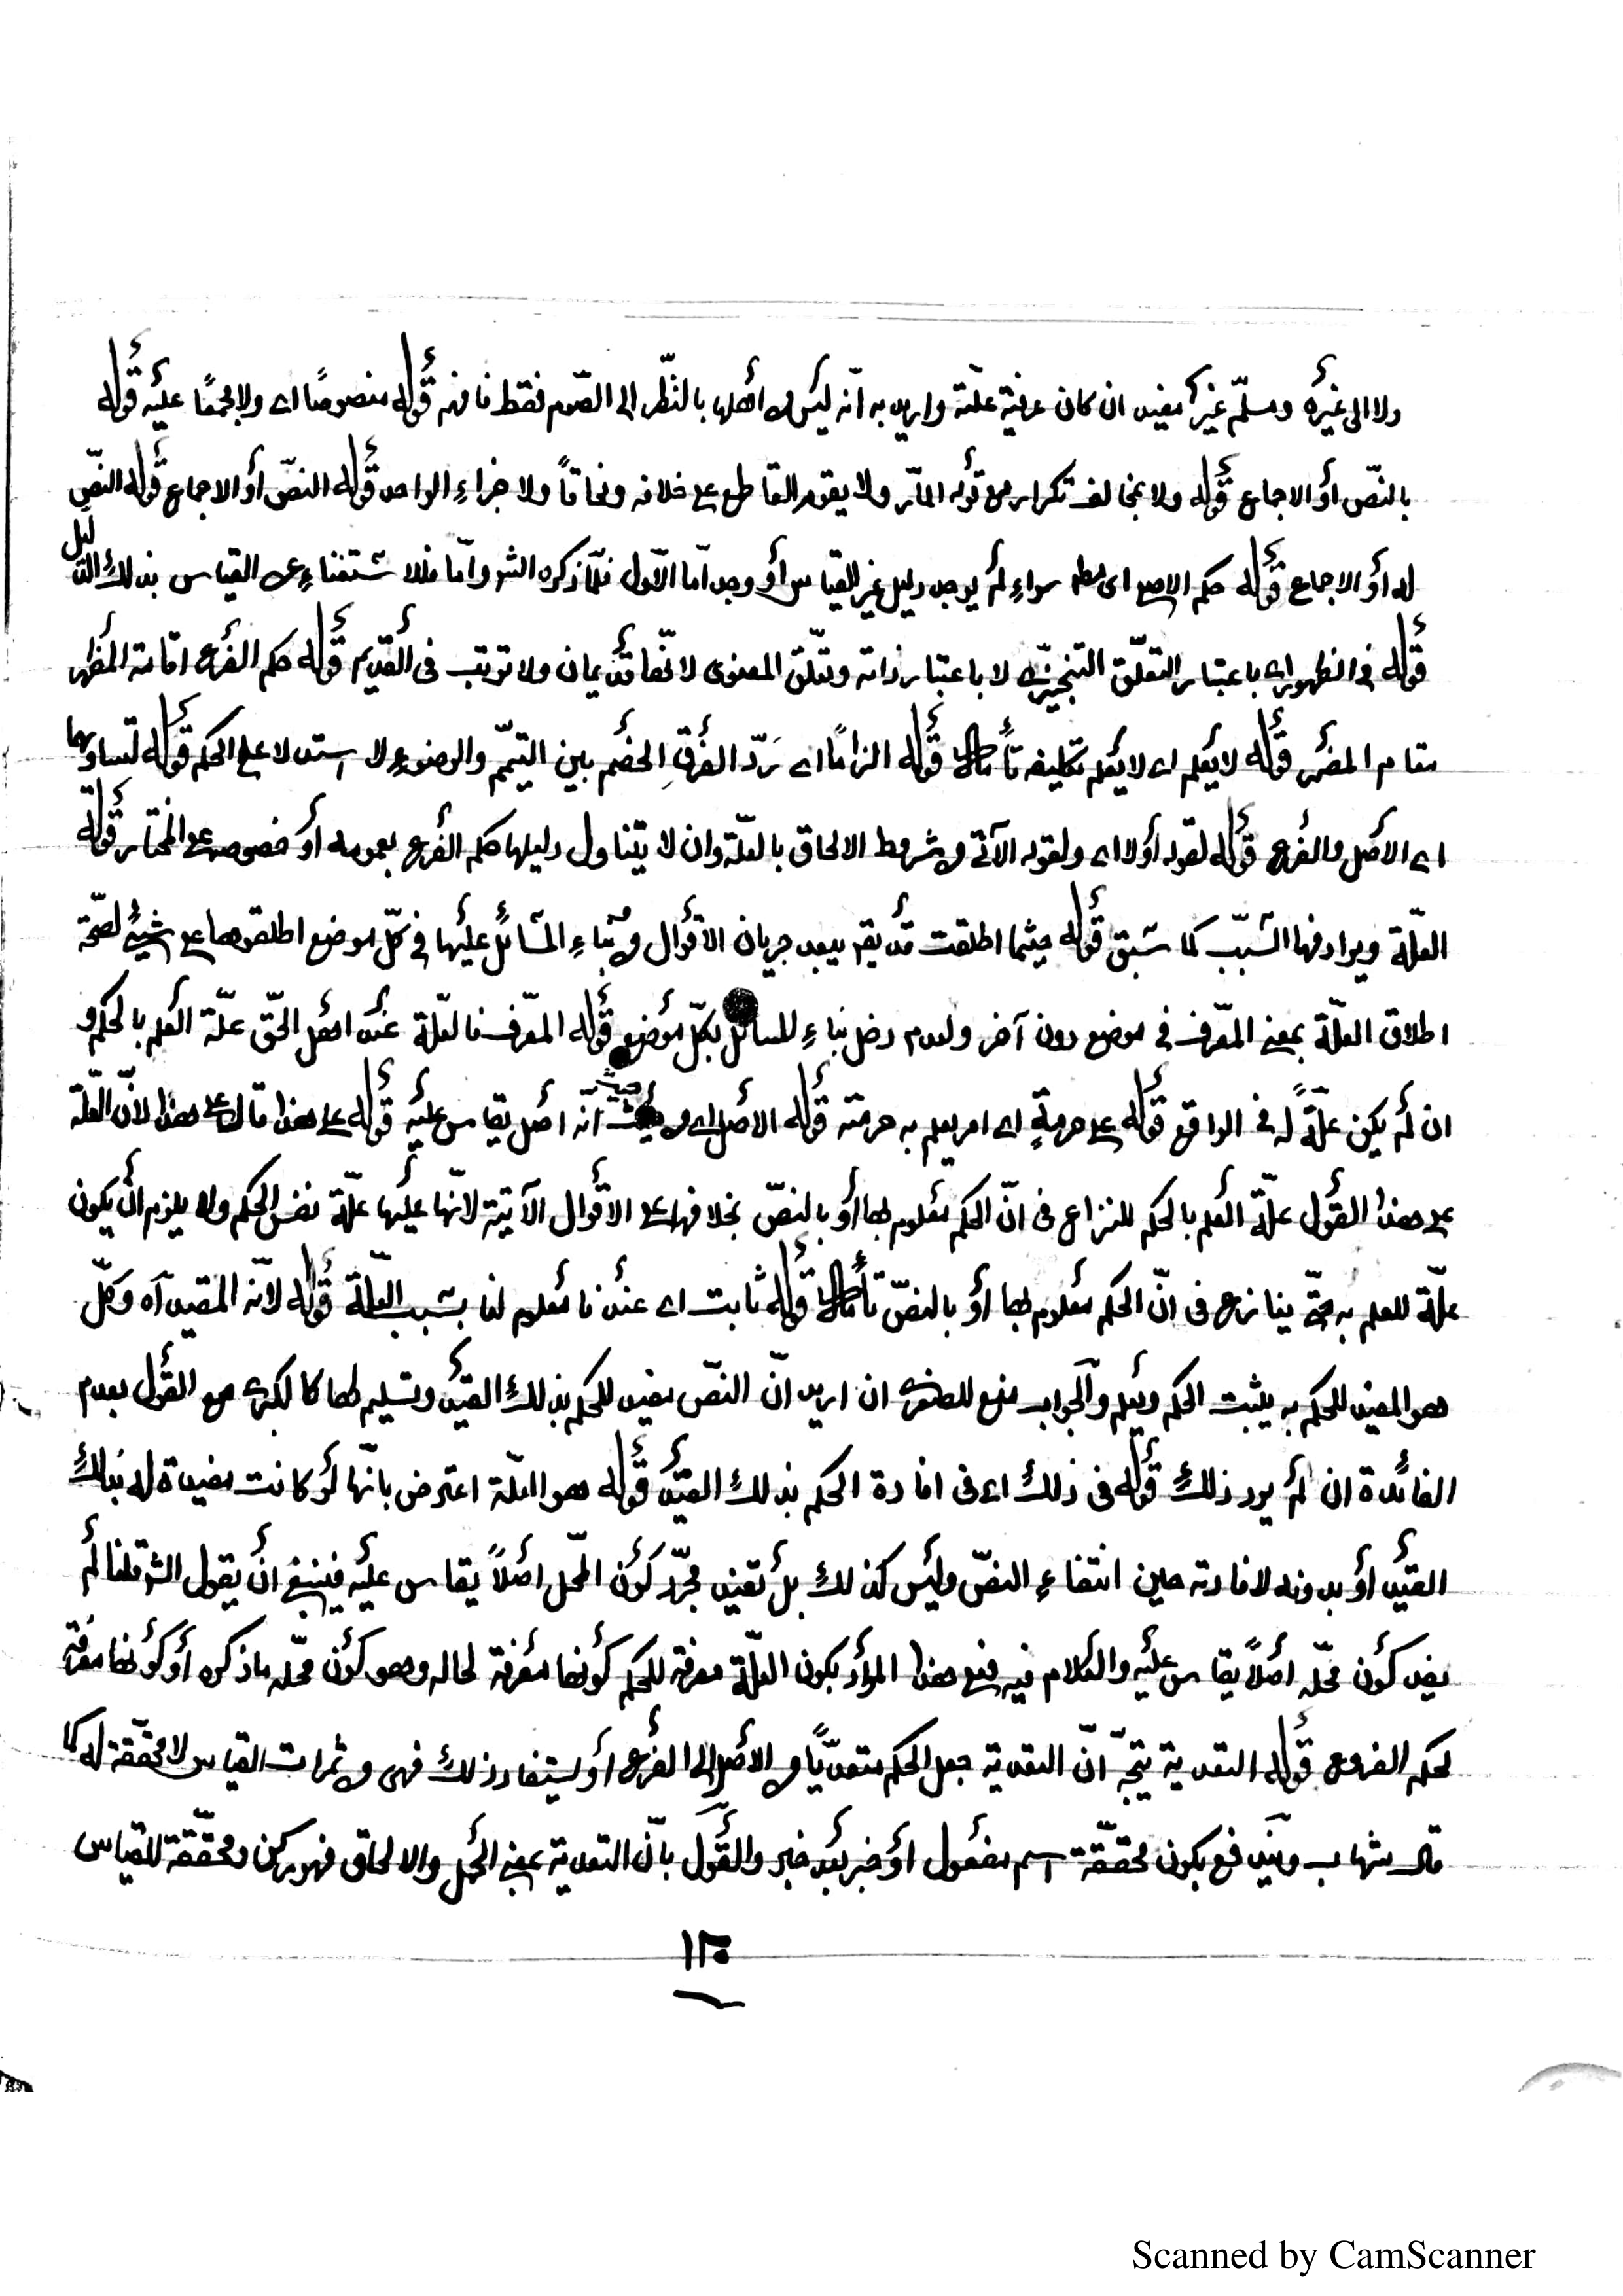 ولا الى غيره ومسلّم غير مفيد ان كان عرفية علّته واريد به انّه ليس من اهلها بالنظر الى الصّوم فقط فافهم قوله منصوصًا اى ولا مجمعًا عليه قوله
بالنصّ أو الاجماع قوله ولا يخالف تكرار مع قوله المارّ ولا يقوم القاطع على خلافه وفاقاً ولا جزاءِ الواحد قوله النصّ أو الاجماع قوله النصّ
له أو الاجماع قوله حكم الاصل اى سواءِ لم يوجد دليل غير القياس أو وجد امّا الاّول فلما ذكره الشر وامّا فللاستغناءِ عن القياس بذلك الدّليل
قوله فى الظهور اى باعتبار التعلّق التنجيزى لا باعتبار ذاته وتعلّق المعنوى لانّهما قديمان ولا ترتب فى القديم قوله حكم الفرع اقامة المظهر
مقام المضمر قوله لا يعلم اى لا يعلم تكليفه تأمّل قوله الزامًا اى ردّ الفرقِ الخصم بين التيمّم والوضوءِ لا استدلالا على الحكم قوله لتساويهما
اى الأصل والفرع قوله لقوله أوّلا اى ولقوله الآتى من شروط الالحاق بالعلّة وان لا يتناول دليلها حكم الفرع بعمومه أو خصوصه على المختار قوله
العلّة ويرادفها السّبب كما سبق قوله حيثما اطلقت قد يقر ببعد جريان الاقوال وبناءِ المسائل عليها فى كلّ موضع اطلقوها على شيئٍ لصحّة
اطلاق العلّة بمعنى المعّرف فى موضع دون آخر ولعدم دخل بناءِ المسائل بكلّ موضع قوله المعّرف فالعلّة عند اهل الحّق علّة العلم بالحكم و
ان لم يكن علّةً له فى الواقع قوله على حرمةٍ اى امر يعلم به حرمته قوله الاصل اى من حيث انّه أصل يقاس عليه قوله على هذا قال على هذا لأنّ العلّة
على هذا القول علّة العلم بالحكم للنزاع فى انّ الحكم معلوم بها أو بالنصّ بخلافها على الاقوال الآتية لانّها عليها علّة نفس الحكم ولا يلزم انْ يكون
علّة للعلم به حتّى ينازع فى انّ الحكم معلوم بها أو بالنصّ تأمّل قوله ثابت اى عندنا معلوم لنا بسبب العلّة قوله لانّه المقيد آه وكلّ
هو المفيد للحكم به يثبت الحكم ويعلم والجواب منع للصغرى ان اريد انّ النصّ مفيد للحكم بذلك القيد وتسليم لها كالكبرى مع القول بعدم
الفائدة ان لم يرد ذلك قوله فى ذلك اى فى افادة الحكم بذلك القيد قوله هو العلّة اعترض بانّها لو كانت مفيدة له بذلك
القيد أو بدونه لافادته حين انتفاءِ النصّ وليس كذلك بل تفيد مجرّد كون المحل اصلاً يقاس عليه فينبغى انْ يقول الشر قلنا لم
يفد كون محلّه اصلاً يقاس عليه والكلام فيه فمع هذا المراد بكون العلّة معرفة للحكم كونها معرفة لحاله وهو كون محلّه ماذكره أو كونها معرفة
لحكم الفروع قوله التعدية يتجّه انّ التعدية جعل الحكم متعدّيًا من الاصل الى الفرع أو يستفاد ذلك فهى من ثمرات القياس لا محقّقة له كما
قاله شهاب ويندفع بكون محقّقة اسم مفعول أو خبر بعد خبر والقول بانّ التعدية بمعنى الحمل والالحاق فهو ركن ومحقّقة للقياس
Scanned by CamScanner